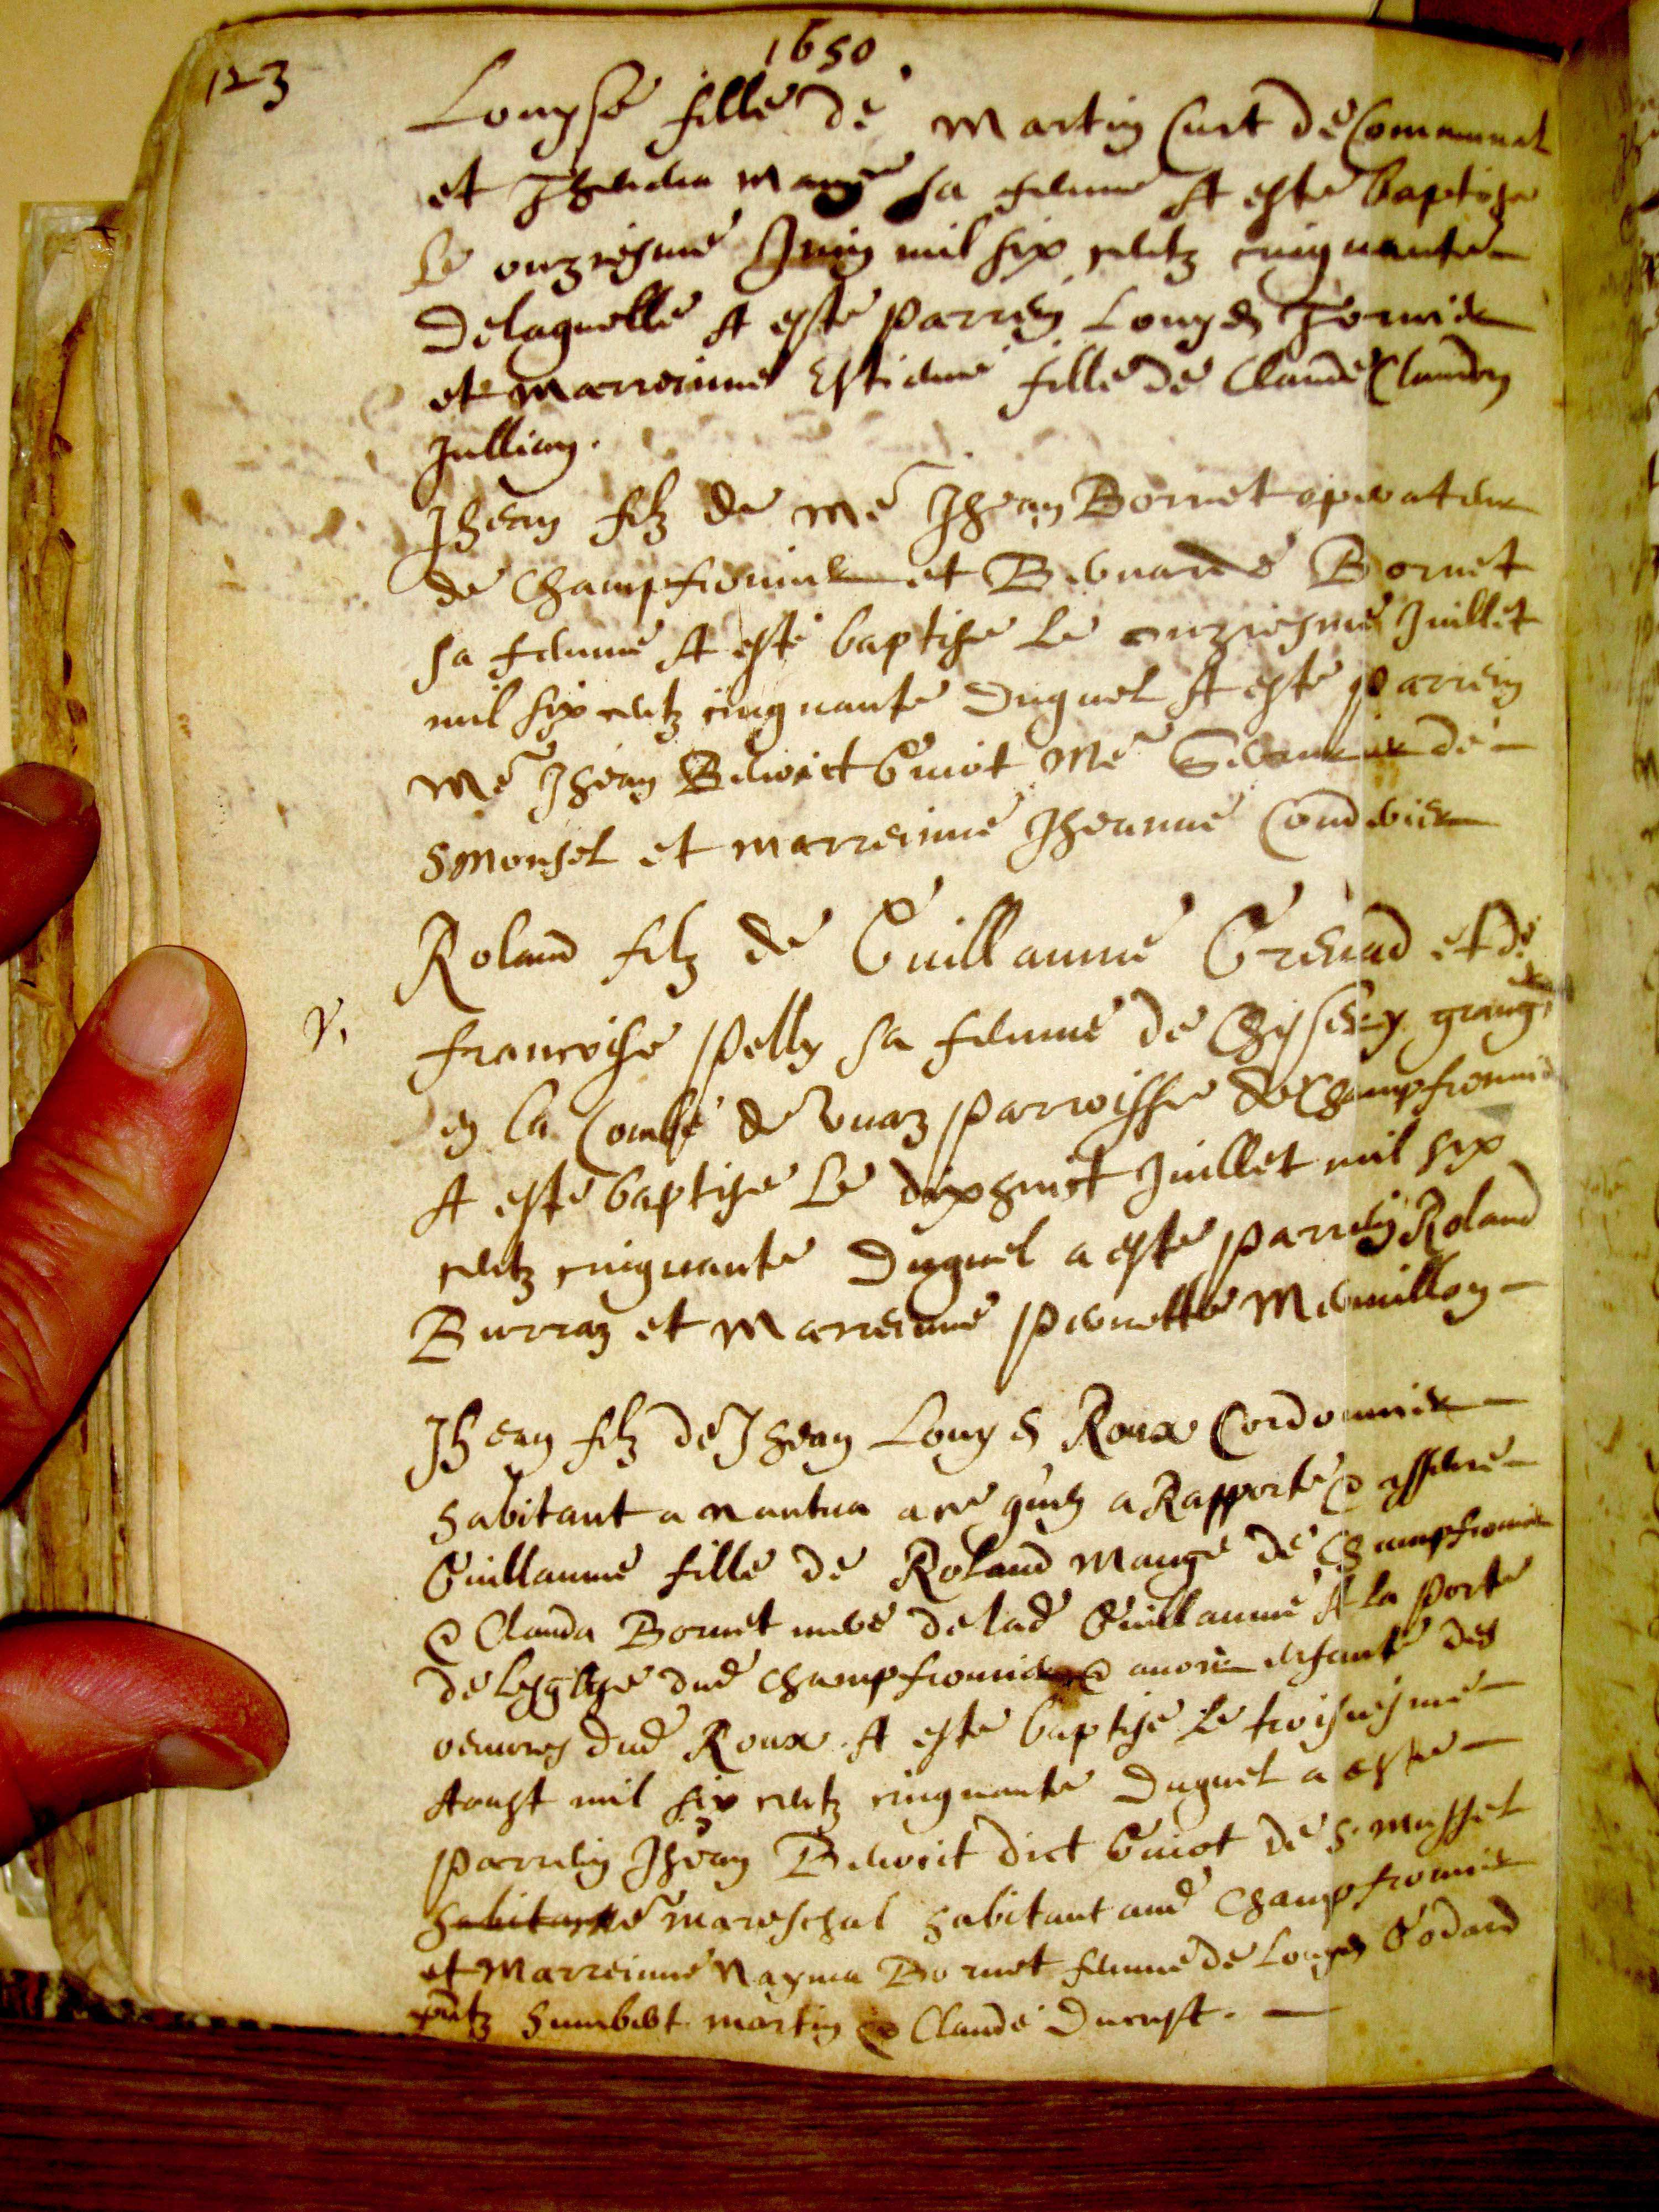 123
1650
Louyse fille de Martin Curt de Communal
et Thevena Mange sa femme A esté baptisee
le onziesme Juing mil six centz cinquante
Delaquelle A esté parrein Louys Tornier
et marreinne Estienne fille de Claude Claudon
Jullian.
Jhean filz de Me Jhean Bornet operateur
de Champfromier et Bernarde Bornet
sa femme A esté baptisé le onziesme Juillet
mil six centz cinquante Duquel A esté parrein
Me Jhean Benoict Guiot Me de
et marreinne Jheanne Coudurier
Roland filz de Guillaume Grenard et de
Francoise Pelly sa femme de Chissey grang
en la Combe d'Evuaz parroisse de Champfromier
A esté baptisé le dixhuict Juillet mil six
centz cinquante Duquel a esté parrein Roland
Burraz et Marreinne Pernette Mermillon
Jhean filz de Jhean Louys Roux Cordonnier
habitant a Nantua a ce quen a Rapporté & asseuré
Guillaume fille de Roland Mange de Champfromier
& Clauda Bornet mere de lad Guillaume A la porte
de lesglise dud Champfromier & avoir enfanté des
oeuvres dud Roux. A esté baptisé le troisiesme
Aoust mil six centz cinquante Duquel a esté
parrein Jhean Benoit dict Guiot de
mareschal habitant aud Champfromier
et Marreinne Nayma Bornet femme de Louys Godard
pntz Humbert Martin & Claude Ducrest.